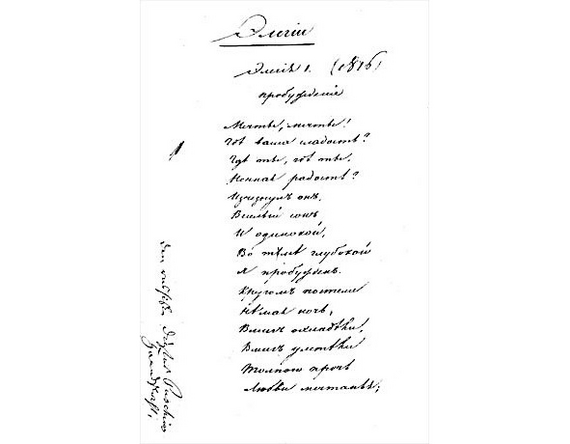 Элегіи
Элегія 1. (1816)
пробужденіе
Мечты, мечты!
Гдѣ ваша сладость?
Гдѣ ты, гдѣ ты,
Ночная радость?
Исчезнулъ онъ,
Веселый сонъ,
И одинокой,
Во тьмѣ глубокой
Я пробужденъ.
Кругомъ постели
Нѣмая ночь;
Вмигъ охладѣли,
Вмигъ улетѣли
Толпою прочь
Любви мечтанья;
Puschkins
Handschrift.